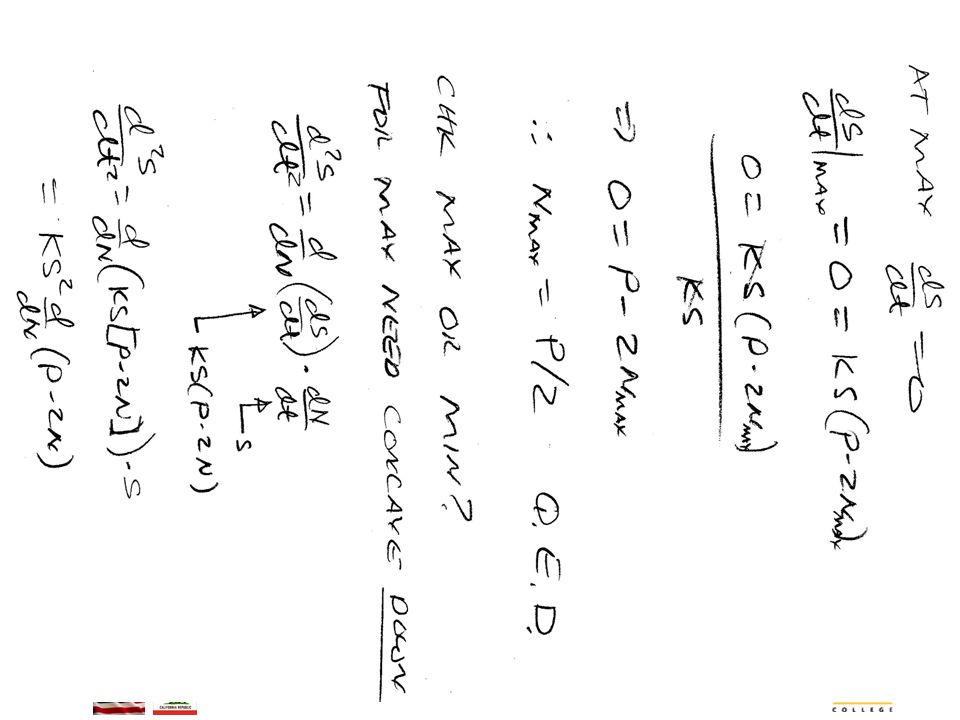 AT MAX dS/dt = 0
dS/dt|MAX = 0 = KS(P-2NMAX)
0 = KS(P-2NMAX)
KS
=> 0 = P-2NMAX
∴ NMAX = P/2 Q.E.D.
CHK MAX OR MIN?
FOR MAX NEED CONCAVE DOWN
d²S/dt² = d/dN(dS/dt)·dN/dt
S
KS(P-2N)
d²S/dt² = d/dN(KS[P-2N])·S
= KS² d/dN(P-2N)
CALIFORNIA REPUBLIC
COLLEGE